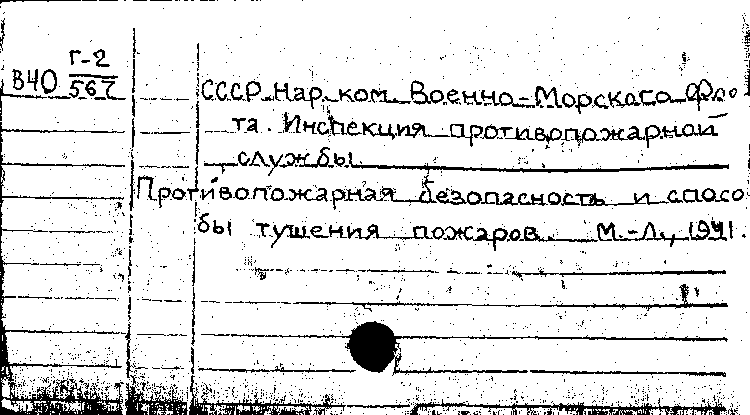 Г-2
В40 567
СССР. Нар. ком. Военно-Морского Фло
та. Инспекция противопожарной
службы.
Противопожарная безопасность и спосо
бы тушения пожаров. М.-Л., 1941.